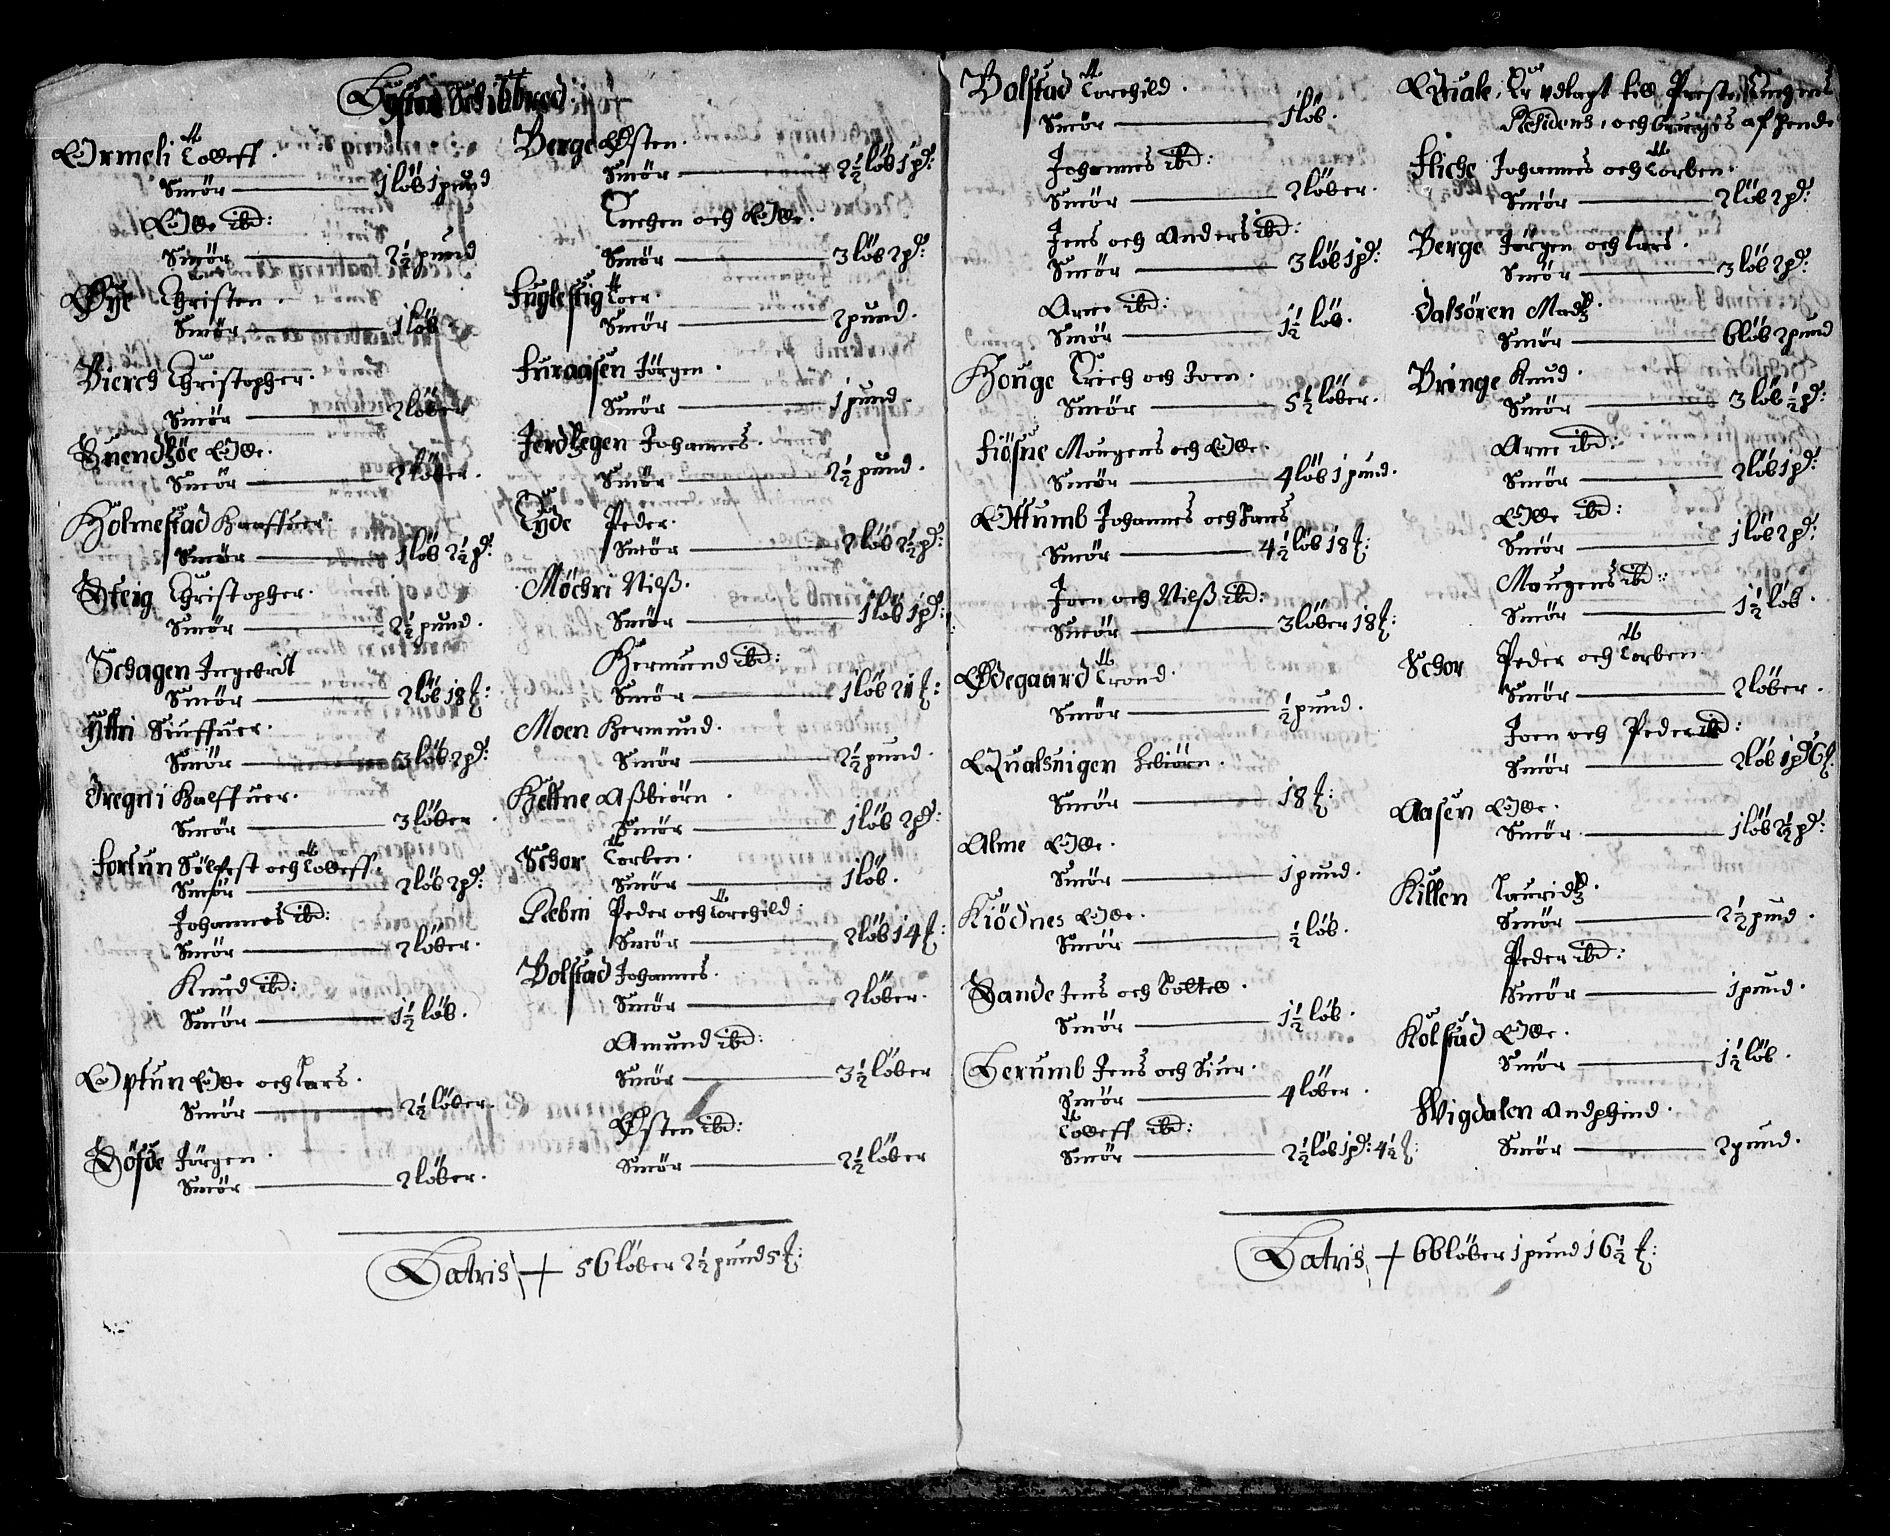 Lyster Schibbred.
Ormeli Tolleff.
Smör — 1 löb 1 pund
Olle ibd:
Smör — 2½ pund
Øye Christen.
Smör — 1 löb
Bierch Christopher.
Smör — 2 löber
Suendhöe Olle.
Smör — 2 löber.
Holmestad Haaffuer.
Smör — 1 löb 2½ pd:
Steig Christopher.
Smör — 2½ pund.
Schagen Ingebrit
Smör — 2 löb 18 ₰:
Yttri Siuffuer.
Smör — 3 löb 2 pd:
Dregni Halffuer.
Smör — 3 löber
Fortun Sölfest och Tolleff.
Smör — 2 löb 2 pd:
Johannes ibd:
Smör — 2 löber.
Knud ibd:
Smör — 1½ löb.
Optun Olle och Lars.
Smör — 2½ löber.
Söfde Jörgen.
Smör — 2 löber.
Berge Østen.
Smör — 2½ löb 1 pd:
Enchen och Olle.
Smör — 3 löb 2 pd:
Fuglestig Toer.
Smör — 2 pund.
Furaasen Jörgen.
Smör — 1 pund.
Jerdhegen Johannes.
Smör — 2½ pund.
Eyde Peder.
Smör — 2 löb 2½ pd:
Möchri Nielß.
Smör — 1 löb 1 pd:
Hermund ibd:
Smör — 1 löb 21 ₰:
Moen Hermund.
Smör — 2½ pund.
Heltne Aßbiörn.
Smör — 1 löb 2 pd:
Schor Torben.
Smör — 1 löb.
Rebni Peder och Torchild:
Smör — 2 löb 14 ₰:
Bolstad Johannes.
Smör — 2 löber.
Amund ibd:
Smör — 3½ löber
Østen ibd:
Smör — 2½ löber
Latris + 56 löber 2½ pund 5 ₰:
Bolstad Torchild.
Smör — 1 löb.
Johannes ibd:
Smör — 2 löber.
Jens och Anders ibd:
Smör — 3 löb 1 pd:
Arne ibd:
Smör — 1½ löb.
Houge Erich och Joen.
Smör — 5½ löber.
Fiösne Mougens och Olle.
Smör — 4 löb 1 pund.
Ottumb Johannes och Hans
Smör — 4½ löb 18 ₰:
Joen och Nielß ibd:
Smör — 3 löber 18 ₰:
Ødegaard Trond.
Smör — ½ pund.
Qualsnigen Zebiörn.
Smör — 18 ₰:
Alme Olle.
Smör — 1 pund.
Kiödnes Olle.
Smör — ½ löb.
Sande Jens och Botteld.
Smör — 1½ löb.
Lerumb Jens och Siur.
Smör — 4 löber.
Tolleff ibd:
Smör — 2½ löb 1 pd: 4½ ₰:
Quale, Er vdlagt till Preste Enchens
Residens, och bruges af hende
Fliche Johannes och Torben.
Smör — 2 löb 2 pd:
Berge Jörgen och Lars.
Smör — 3 löb 2 pd:
Dalsören Madtz.
Smör — 6 löb 2 pund
Bringe Knud.
Smör — 3 löb ½ pd:
Arne ibd:
Smör — 2 löb 1 pd:
Olle ibd:
Smör — 1 löb 2 pd:
Mougens ibd:
Smör — 1½ löb.
Schor Peder och Torben.
Smör — 2 löber.
Joen och Peder ibd:
Smör — 2 löb 1 pd 6 ₰.
Aasen Olle.
Smör — 1 löb 2½ pd:
Killen Lauridtz.
Smör — 2½ pund.
Peder ibd:
Smör — 1 pund.
Kolstad Olle.
Smör — 1½ löb.
Wigdalen Andphind.
Smör — 2 pund.
Latris + 66 löber 1 pund 16½ ₰: